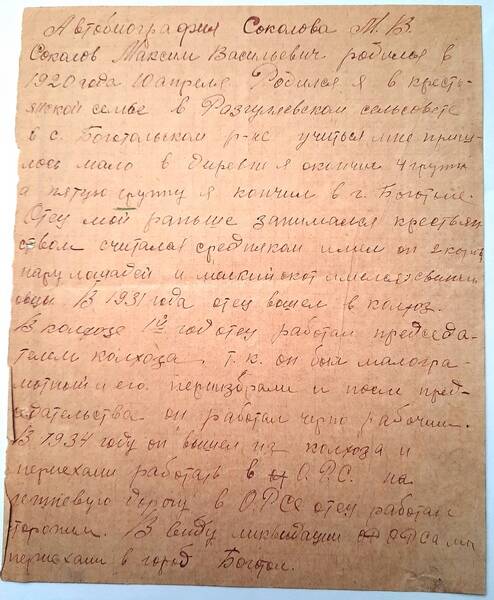 Автобиография Соколова М. В.
Соколов Максим Васильевич родился в
1920 года 10 апреля. Родился я в кресть-
янской семье в Разгуляевском сельсовете
в с. Боготольском р-не учиться мне приш-
лось мало в деревне я окончил 4 группы
а пятую группу я кончил в г. Боготоле.
Отец мой раньше занимался крестьян
ством считался средняком имел он 2 коровы
пару лошадей и мелкий скот имелось свиньи
овцы. В 1931 года отец вошел в колхоз.
В колхозе 1й год отец работал председа-
телем колхоза, т.к. он был малогра-
мотный и его переизбрали и после пред-
седательства он работал черно рабочим.
В 1934 году он вышел из колхоза и
переехали работать в О.Р.С. на
лежневую дорогу в О.РСе отец работал
сторожем. В виду ликвидации ОРСа мы
переехали в город Боготол.